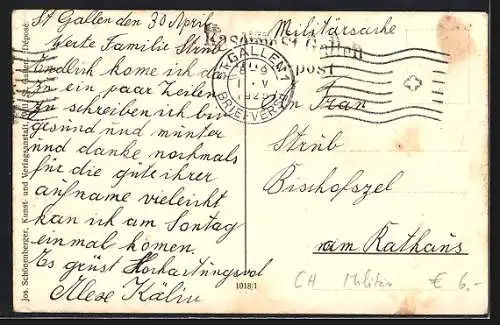 St Gallen den 30 April
Militärsache
Werte Familie Strub
Kaserne St. Gallen
Post
ST. GALLEN 1
BRIEFVERS
Endlich kome ich da
zu ein paar Zeilen
zu schreiben ich bin
gesund und munter
und danke nochmals
für die gute ihrer
aufname vieleicht
kan ich am Sontag
einmal komen.
Es grüst Hochachtungsvol
Kälin
An Frau
Strub
Bischofszel
am Rathaus
1018/1
CH Militär € 6.-
Jos. Schönenberger, Kunst- und Verlagsanstalt, Wil (St. Gallen). Déposé